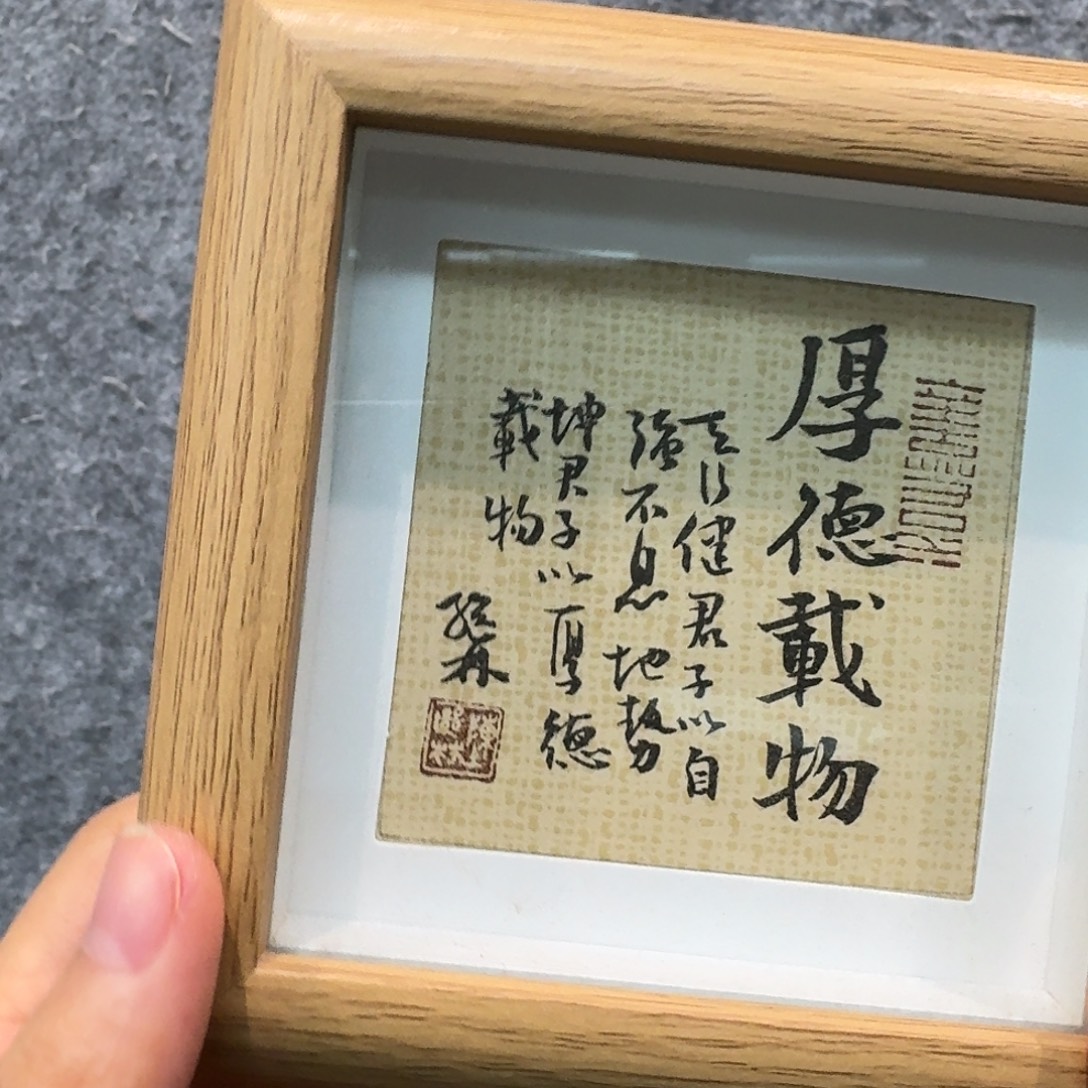 厚德載物
天行健君子以自
強不息地勢
坤君子以厚德
載物